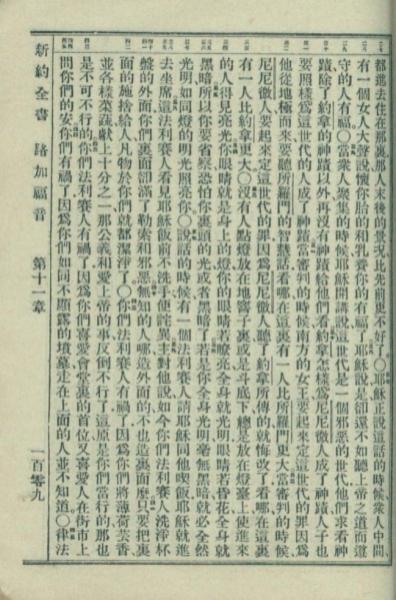 都進去住在那裏那人末後的景況比先前更不好了○耶穌正說這話的時候衆人中間
有一個女人大聲說懷你胎的和乳養你的有福了耶穌說是却還不如聽上帝之道而遵
守的人有福○當衆人聚集的時候耶穌開講說這世代是一個邪惡的世代他們求看神
蹟除了約拿的神蹟以外再沒有神蹟給他們看約拿怎樣爲尼尼微人成了神蹟人子也
要照樣爲這世代的人成了神蹟當審判的時候南方的女王要起來定這世代的罪因爲
他從地極而來要聽所羅門的智慧話看哪在這裏有一人比所羅門更大當審判的時候
尼尼微人要起來定這世代的罪因爲尼尼微人聽了約拿所傳的就悔改了看哪在這裏
有一人比約拿更大○沒有人點燈放在地窨子裏或是斗底下總是放在燈臺上使進來
的人得見亮光你眼睛就是身上的燈你的眼睛若瞭亮全身就光明眼睛若昏花全身就
黑暗所以你要省察恐怕你裏頭的光或者黑暗了若是你全身光明毫無黑暗就必全然
光明如同燈的明光照亮你○說話的時候有一個法利賽人請耶穌同他喫飯耶穌就進
去坐席這法利賽人看見耶穌飯前不洗手便詫異主對他說如今你們法利賽人洗淨杯
盤的外面你們裏面却滿了勒索和邪惡無知的人哪造外面的不也造裏面麽只要把裏
面的施捨給人凡物於你們就都潔淨了○你們法利賽人有禍了因爲你們將薄荷芸香
並各樣菜蔬獻上十分之一那公義和愛上帝的事反倒不行了這原是你們當行的那也
是不可不行的你們法利賽人有禍了因爲你們喜愛會堂裏的首位又喜愛人在街市上
問你們的安你們有禍了因爲你們如同不顯露的墳墓走在上面的人並不知道○律法
新約全書 路加福音 第十一章 一百零九